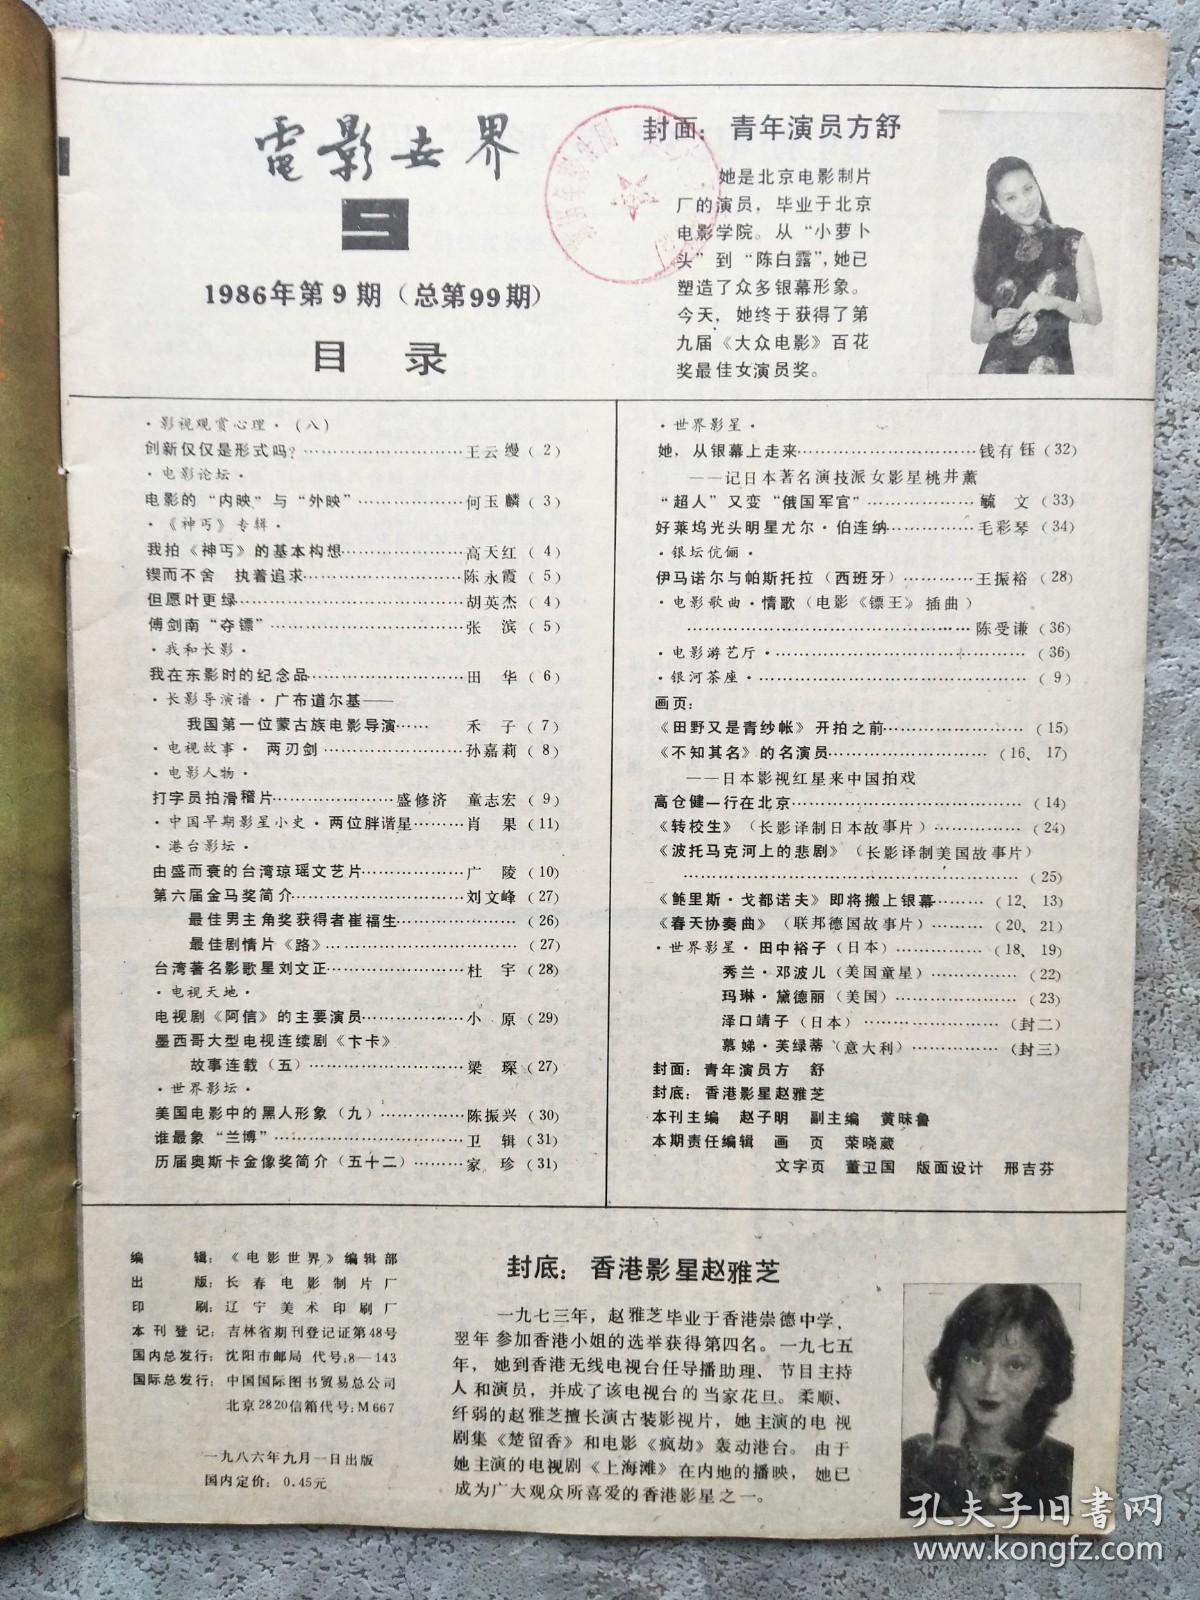 電影世界
1986年第9期（总第99期）
目 录
封面：青年演员方舒
她是北京电影制片
厂的演员，毕业于北京
电影学院。从“小萝卜
头”到“陈白露”，她已
塑造了众多银幕形象。
今天，她终于获得了第
九届《大众电影》百花
奖最佳女演员奖。
·影视观赏心理·（八）
创新仅仅是形式吗？……………………王云缦（2）
·电影论坛·
电影的“内映”与“外映”……………何玉麟（3）
·《神丐》专辑·
我拍《神丐》的基本构想………………高天红（4）
锲而不舍 执着追求……………………陈永霞（5）
但愿叶更绿………………………………胡英杰（4）
傅剑南“夺镖”…………………………张 滨（5）
·我和长影·
我在东影时的纪念品……………………田 华（6）
·长影导演谱·广布道尔基——
我国第一位蒙古族电影导演…… 禾 子（7）
·电视故事· 两刃剑…………………孙嘉莉（8）
·电影人物·
打字员拍滑稽片………………盛修济 童志宏（9）
·中国早期影星小史·两位胖谐星………肖 果（11）
·港台影坛·
由盛而衰的台湾琼瑶文艺片……………广 陵（10）
第六届金马奖简介………………………刘文峰（27）
最佳男主角奖获得者崔福生………………（26）
最佳剧情片《路》…………………………（27）
台湾著名影歌星刘文正…………………杜 宇（28）
·电视天地·
电视剧《阿信》的主要演员……………小 原（29）
墨西哥大型电视连续剧《卞卡》
故事连载（五）……………………梁 琛（27）
·世界影坛·
美国电影中的黑人形象（九）…………陈振兴（30）
谁最象“兰博”…………………………卫 辑（31）
历届奥斯卡金像奖简介（五十二）………家 珍（31）
·世界影星·
她，从银幕上走来………………………钱有钰（32）
——记日本著名演技派女影星桃井薰
“超人”又变“俄国军官”………………毓 文（33）
好莱坞光头明星尤尔·伯连纳…………毛彩琴（34）
·银坛伉俪·
伊马诺尔与帕斯托拉（西班牙）…………王振裕（28）
·电影歌曲·情歌（电影《镖王》插曲）
……………………………………陈受谦（36）
·电影游艺厅·……………………………（36）
·银河茶座·………………………………（9）
画页：
《田野又是青纱帐》开拍之前…………………（15）
《不知其名》的名演员……………………（16、17）
——日本影视红星来中国拍戏
高仓健一行在北京……………………………（14）
《转校生》（长影译制日本故事片）……………（24）
《波托马克河上的悲剧》（长影译制美国故事片）
……………………………………………（25）
《鲍里斯·戈都诺夫》即将搬上银幕………（12、13）
《春天协奏曲》（联邦德国故事片）………（20、21）
·世界影星·田中裕子（日本）…………（18、19）
秀兰·邓波儿（美国童星）……………（22）
玛琳·黛德丽（美国）…………………（23）
泽口靖子（日本）…………………（封二）
慕娣·芙绿蒂（意大利）……………（封三）
封面：青年演员方 舒
封底：香港影星赵雅芝
本刊主编 赵子明 副主编 黄昧鲁
本期责任编辑 画 页 荣晓葳
文字页 董卫国 版面设计 邢吉芬
编 辑：《电影世界》编辑部
出 版：长春电影制片厂
印 刷：辽宁美术印刷厂
本刊登记：吉林省期刊登记证第48号
国内总发行：沈阳市邮局 代号：8—143
国际总发行：中国国际图书贸易总公司
北京2820信箱代号：M667
一九八六年九月一日出版
国内定价：0.45元
封底：香港影星赵雅芝
一九七三年，赵雅芝毕业于香港崇德中学，
翌年参加香港小姐的选举获得第四名。一九七五
年，她到香港无线电视台任导播助理、节目主持
人和演员，并成了该电视台的当家花旦。柔顺、
纤弱的赵雅芝擅长演古装影视片，她主演的电视
剧集《楚留香》和电影《疯劫》轰动港台。由于
她主演的电视剧《上海滩》在内地的播映，她已
成为广大观众所喜爱的香港影星之一。
孔夫子旧书网
www.kongfz.com